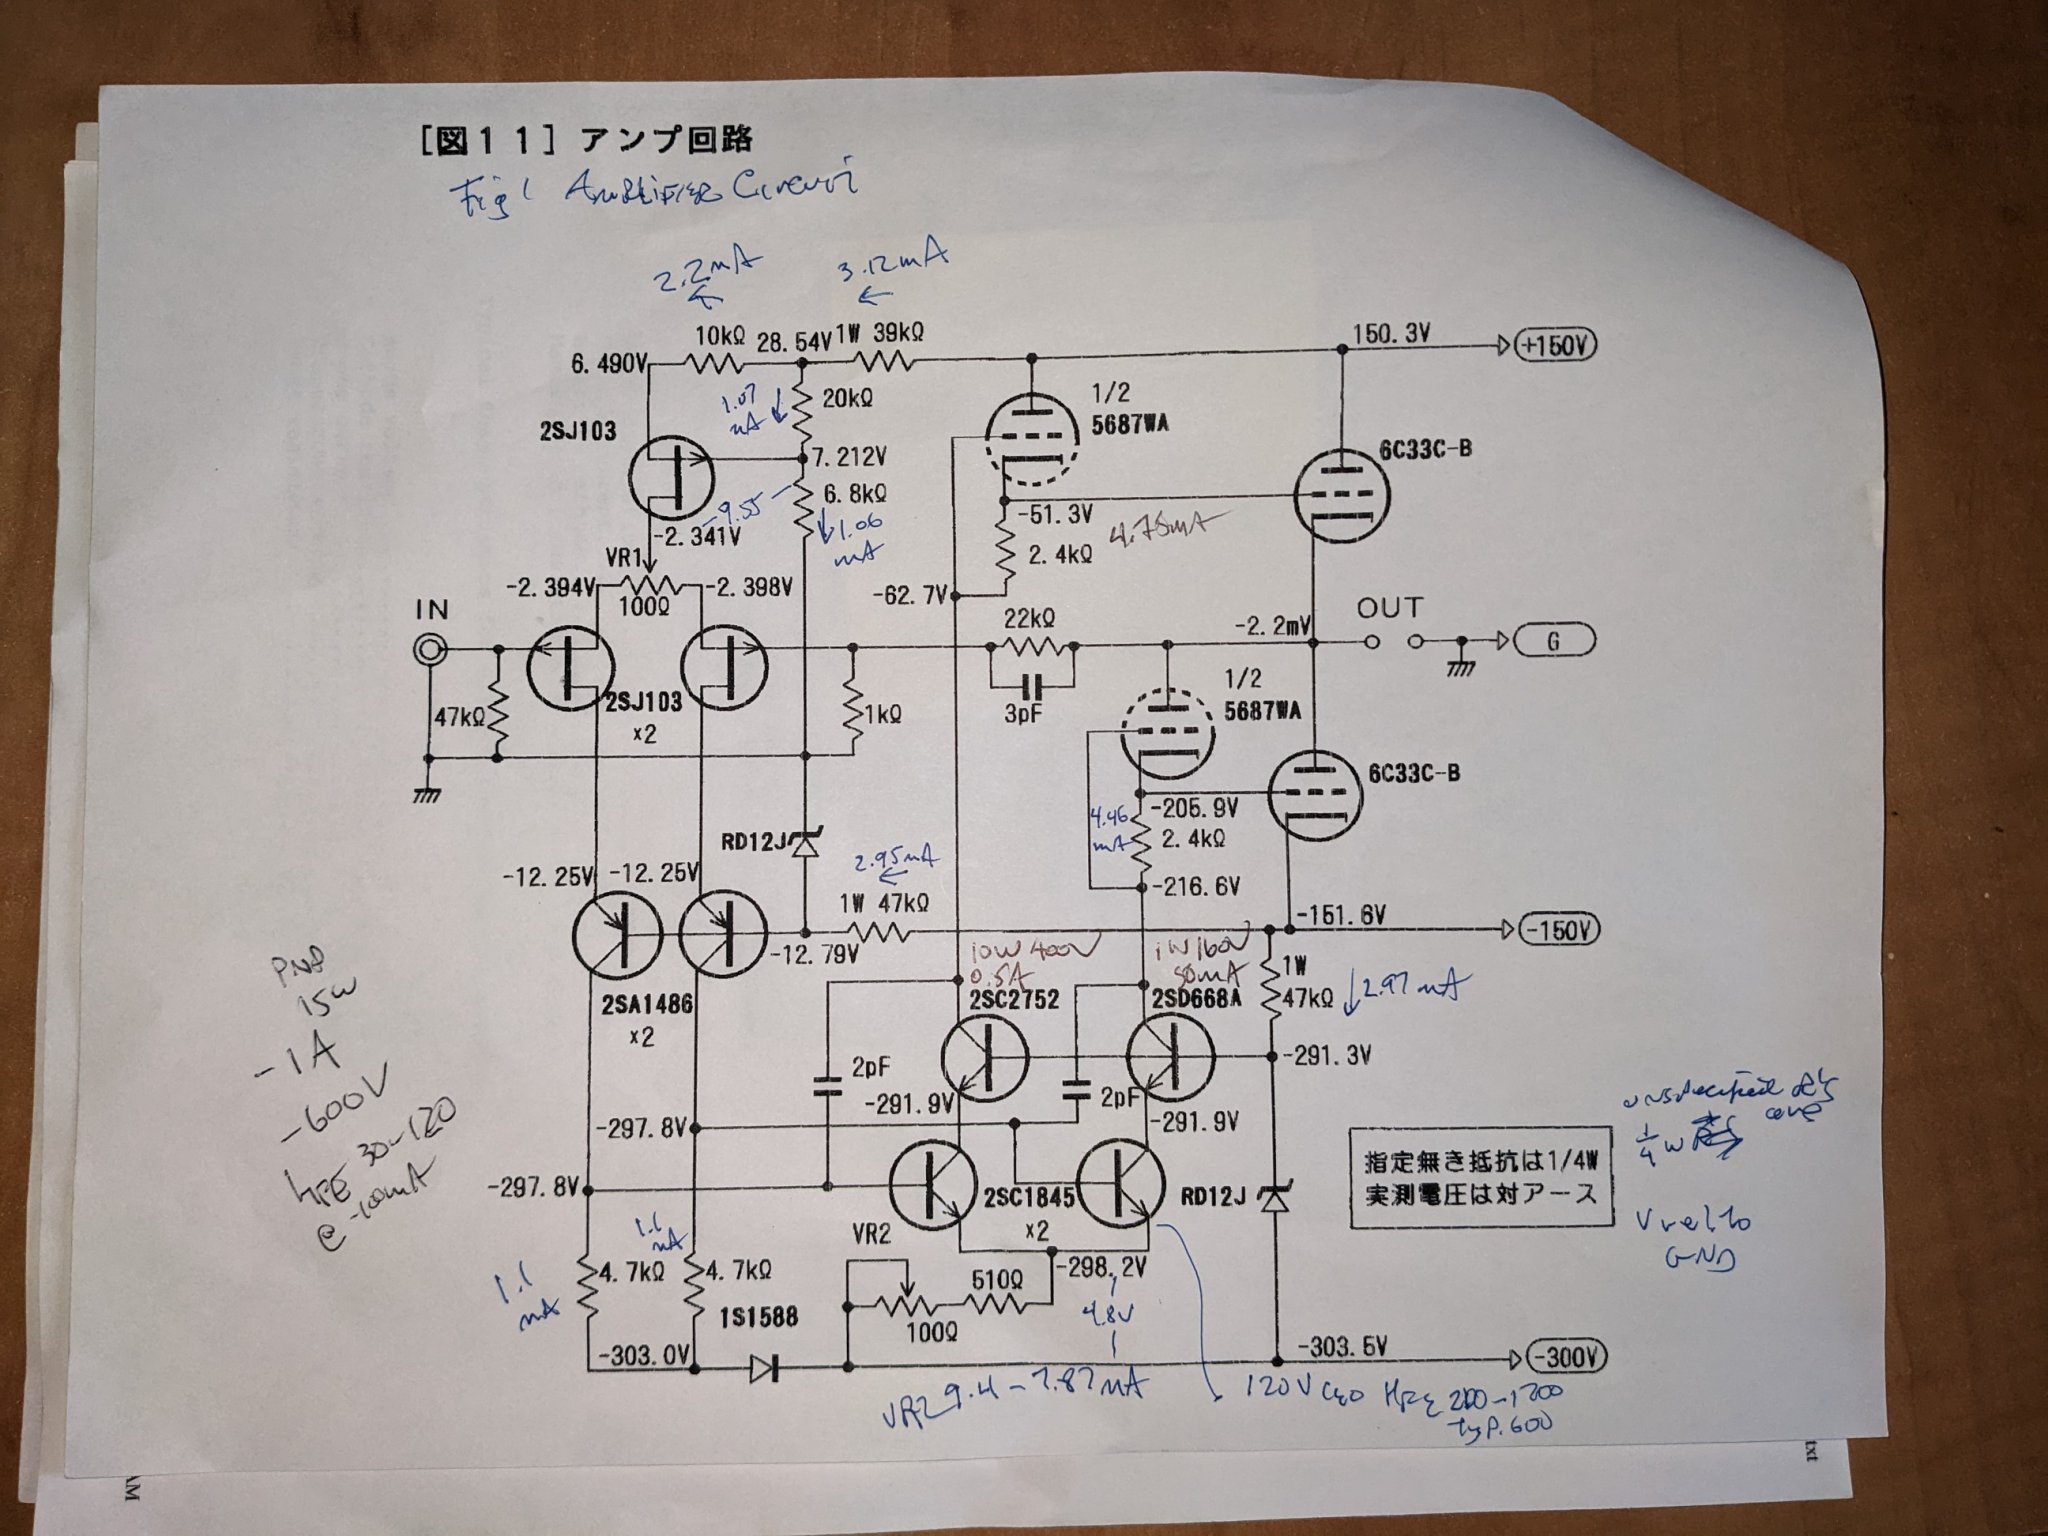 [図11] アンプ回路
Fig 1 Amplifier Circuit
2.2mA
3.12mA
10kΩ
28.54V
1W 39kΩ
150.3V
+150V
6.490V
1.07
mA
20kΩ
1/2
5687WA
2SJ103
7.212V
6C33C-B
-9.55
6.8kΩ
1.06
mA
-51.3V
4.75mA
-2.341V
2.4kΩ
VR1
-2.394V
100Ω
-2.398V
-62.7V
IN
22kΩ
OUT
-2.2mV
G
47kΩ
2SJ103
x2
1kΩ
3pF
1/2
5687WA
6C33C-B
-205.9V
4.46
mA
2.4kΩ
RD12J
2.95mA
-12.25V
-12.25V
1W 47kΩ
-216.6V
-151.6V
-150V
-12.79V
10W 400V
0.5A
1W 160V
50mA
1W
47kΩ
2.97mA
2SA1486
x2
2SC2752
2SD668A
PNP
15W
-1A
-600V
hFE 30-120
@-100mA
2pF
-291.3V
-291.9V
2pF
-291.9V
-297.8V
-297.8V
2SC1845
x2
RD12J
指定無き抵抗は1/4W
実測電圧は対アース
unspecified R's
are
1/4 W
V rel to
GND
1.1
mA
1.1
mA
4.7kΩ
4.7kΩ
VR2
510Ω
100Ω
-298.2V
4.8V
1S1588
-303.0V
-303.5V
-300V
VR2 9.4-7.87mA
120V CEO HFE 200-1200
typ. 600
AM
txt